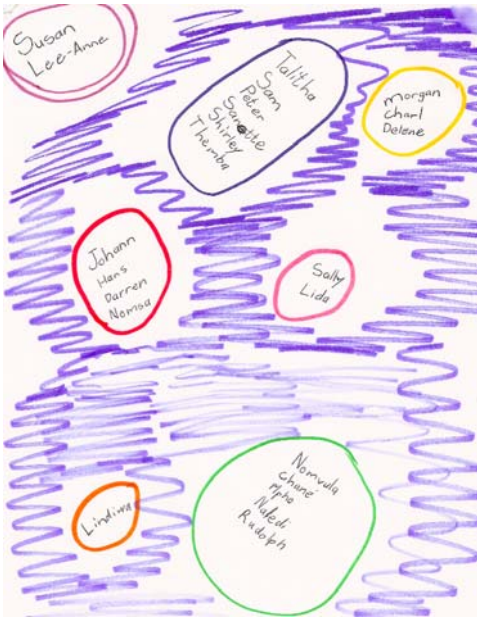 Susan
Lee-Anne
Talitha
Sam
Peter
Sanette
Shirley
Themba
Morgan
Charl
Delene
Johann
Hans
Darren
Nomsa
Sally
Lida
Lindiwa
Nomvula
Chané
Mpho
Naledi
Rudolph